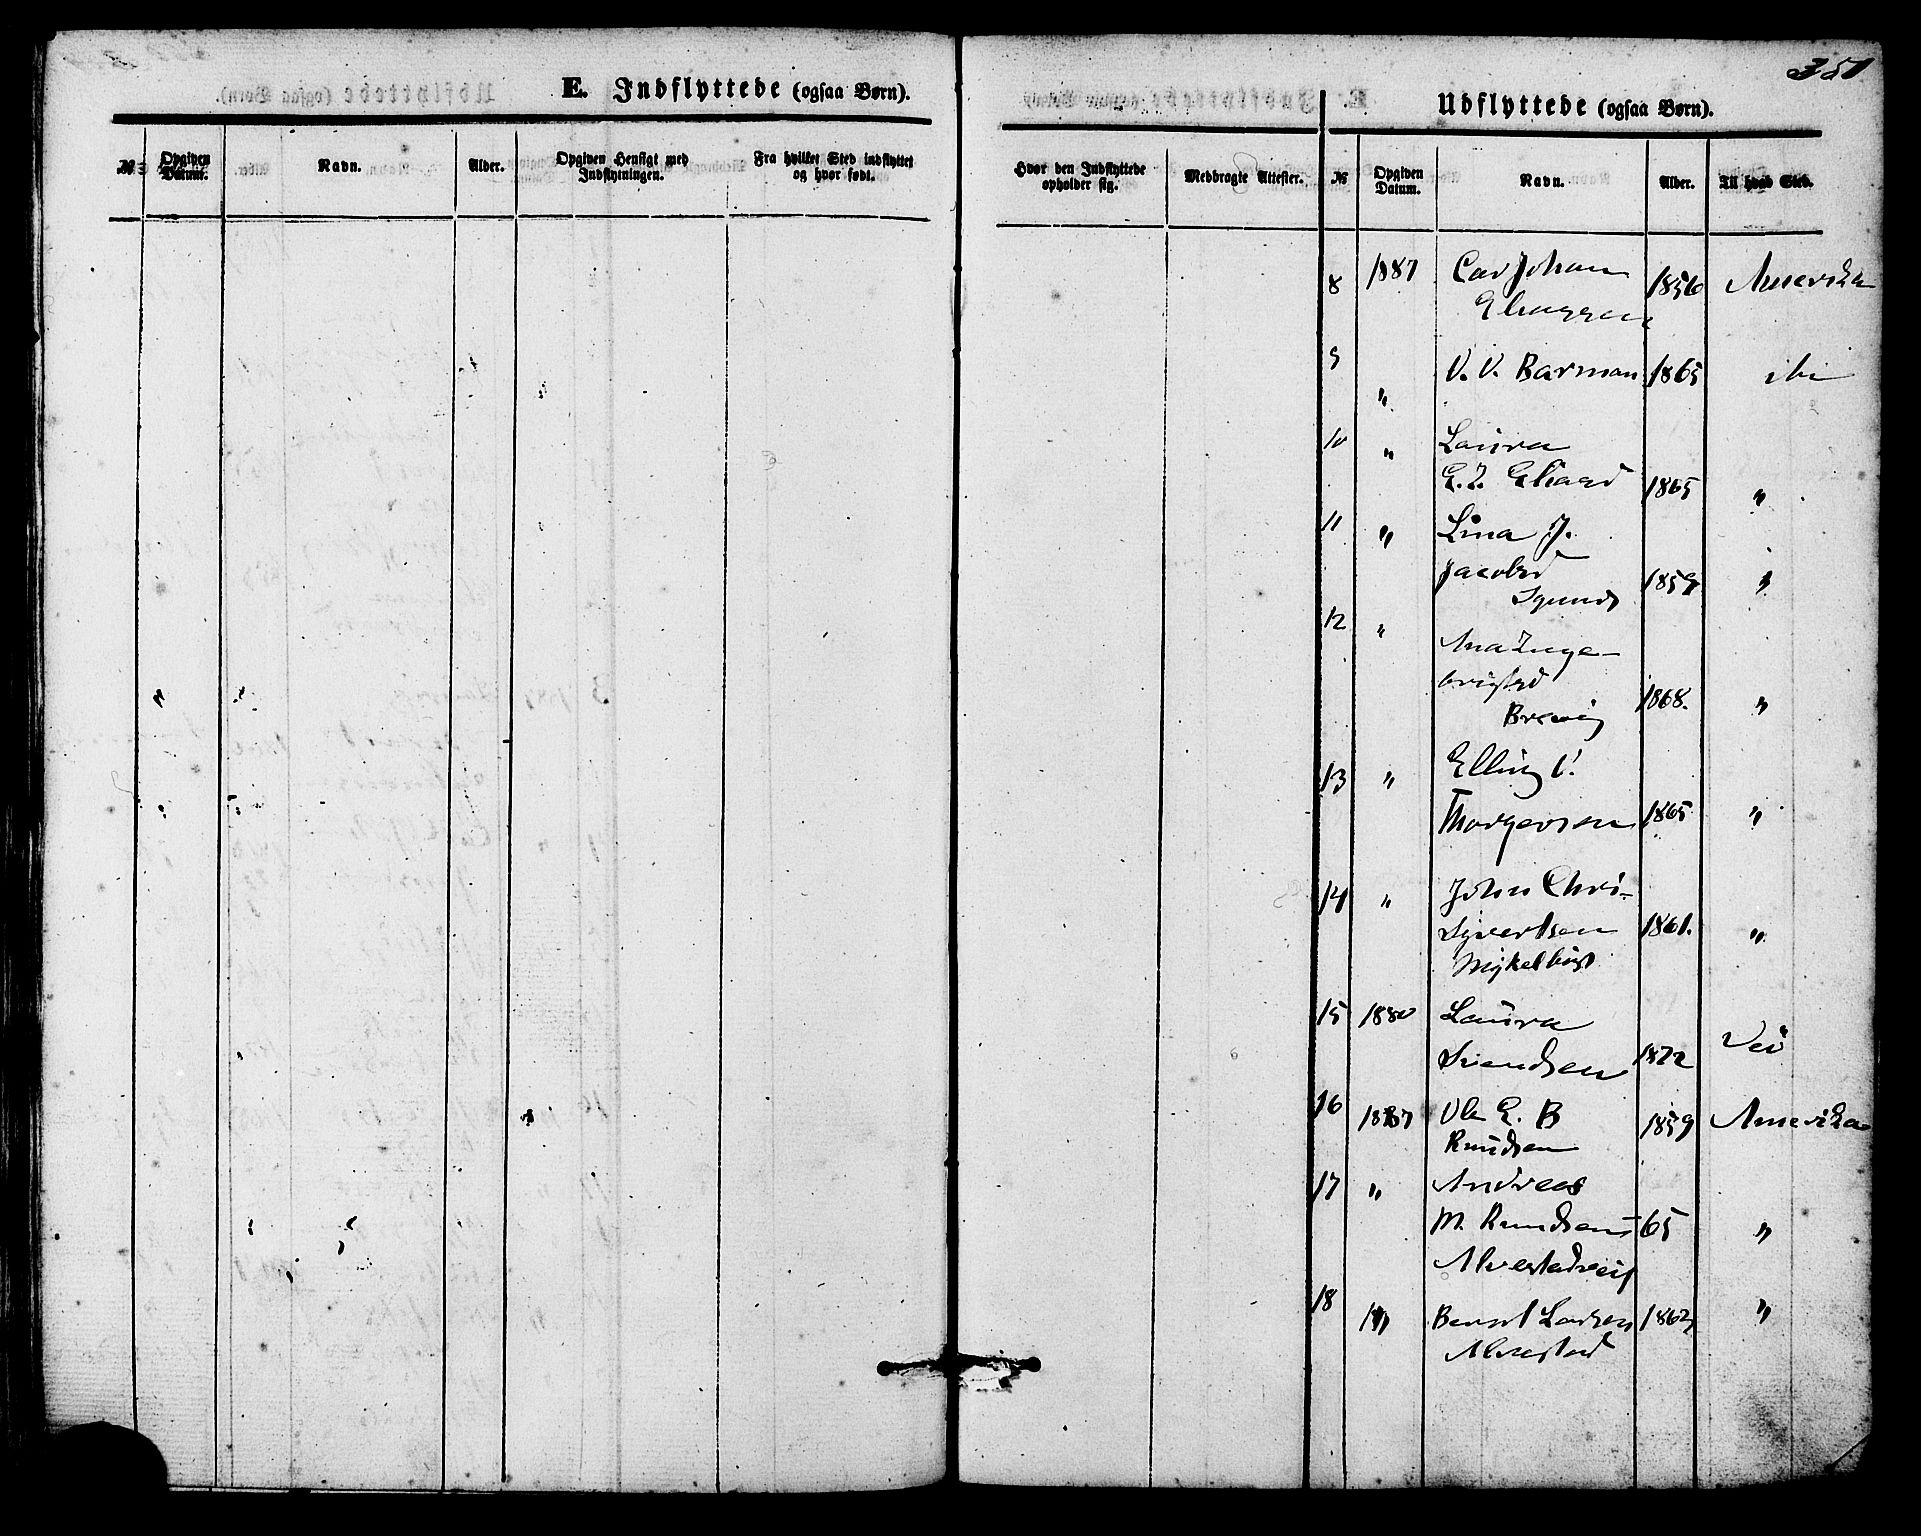 351
E. Indflyttede (ogsaa Børn).
Udflyttede (ogsaa Børn).
№ Opgiven Datum. Navn. Alder. Opgiven Hensigt med Indflytningen. Fra hvilket Sted indflyttet og hvor født.
Hvor den Indflyttede opholder sig. Medbragte Attester. № Opgiven Datum. Navn. Alder. Til hvad Sted.
8 1887 Carl Johan 1856 Amerika
9 " V. V. Barman 1865 ibi
10 " Laura
1865 "
11 " Lina J.
Jacobsd 1859 "
12 " Ana Inge-
brigtsd
Brevig 1868. "
13 " Elling
Thorgersen 1865 "
14 " John Chri-
Syvertsen 1861. "
Mykelbust
15 1880 Laura
Svendsen 1872 Veö
16 1887 Ole E. B 1859 Amerika
Knudsen
17 " Andreas
M. Knudsen 65 "
18 " Bernt Larsen 1862 "
Alvestad